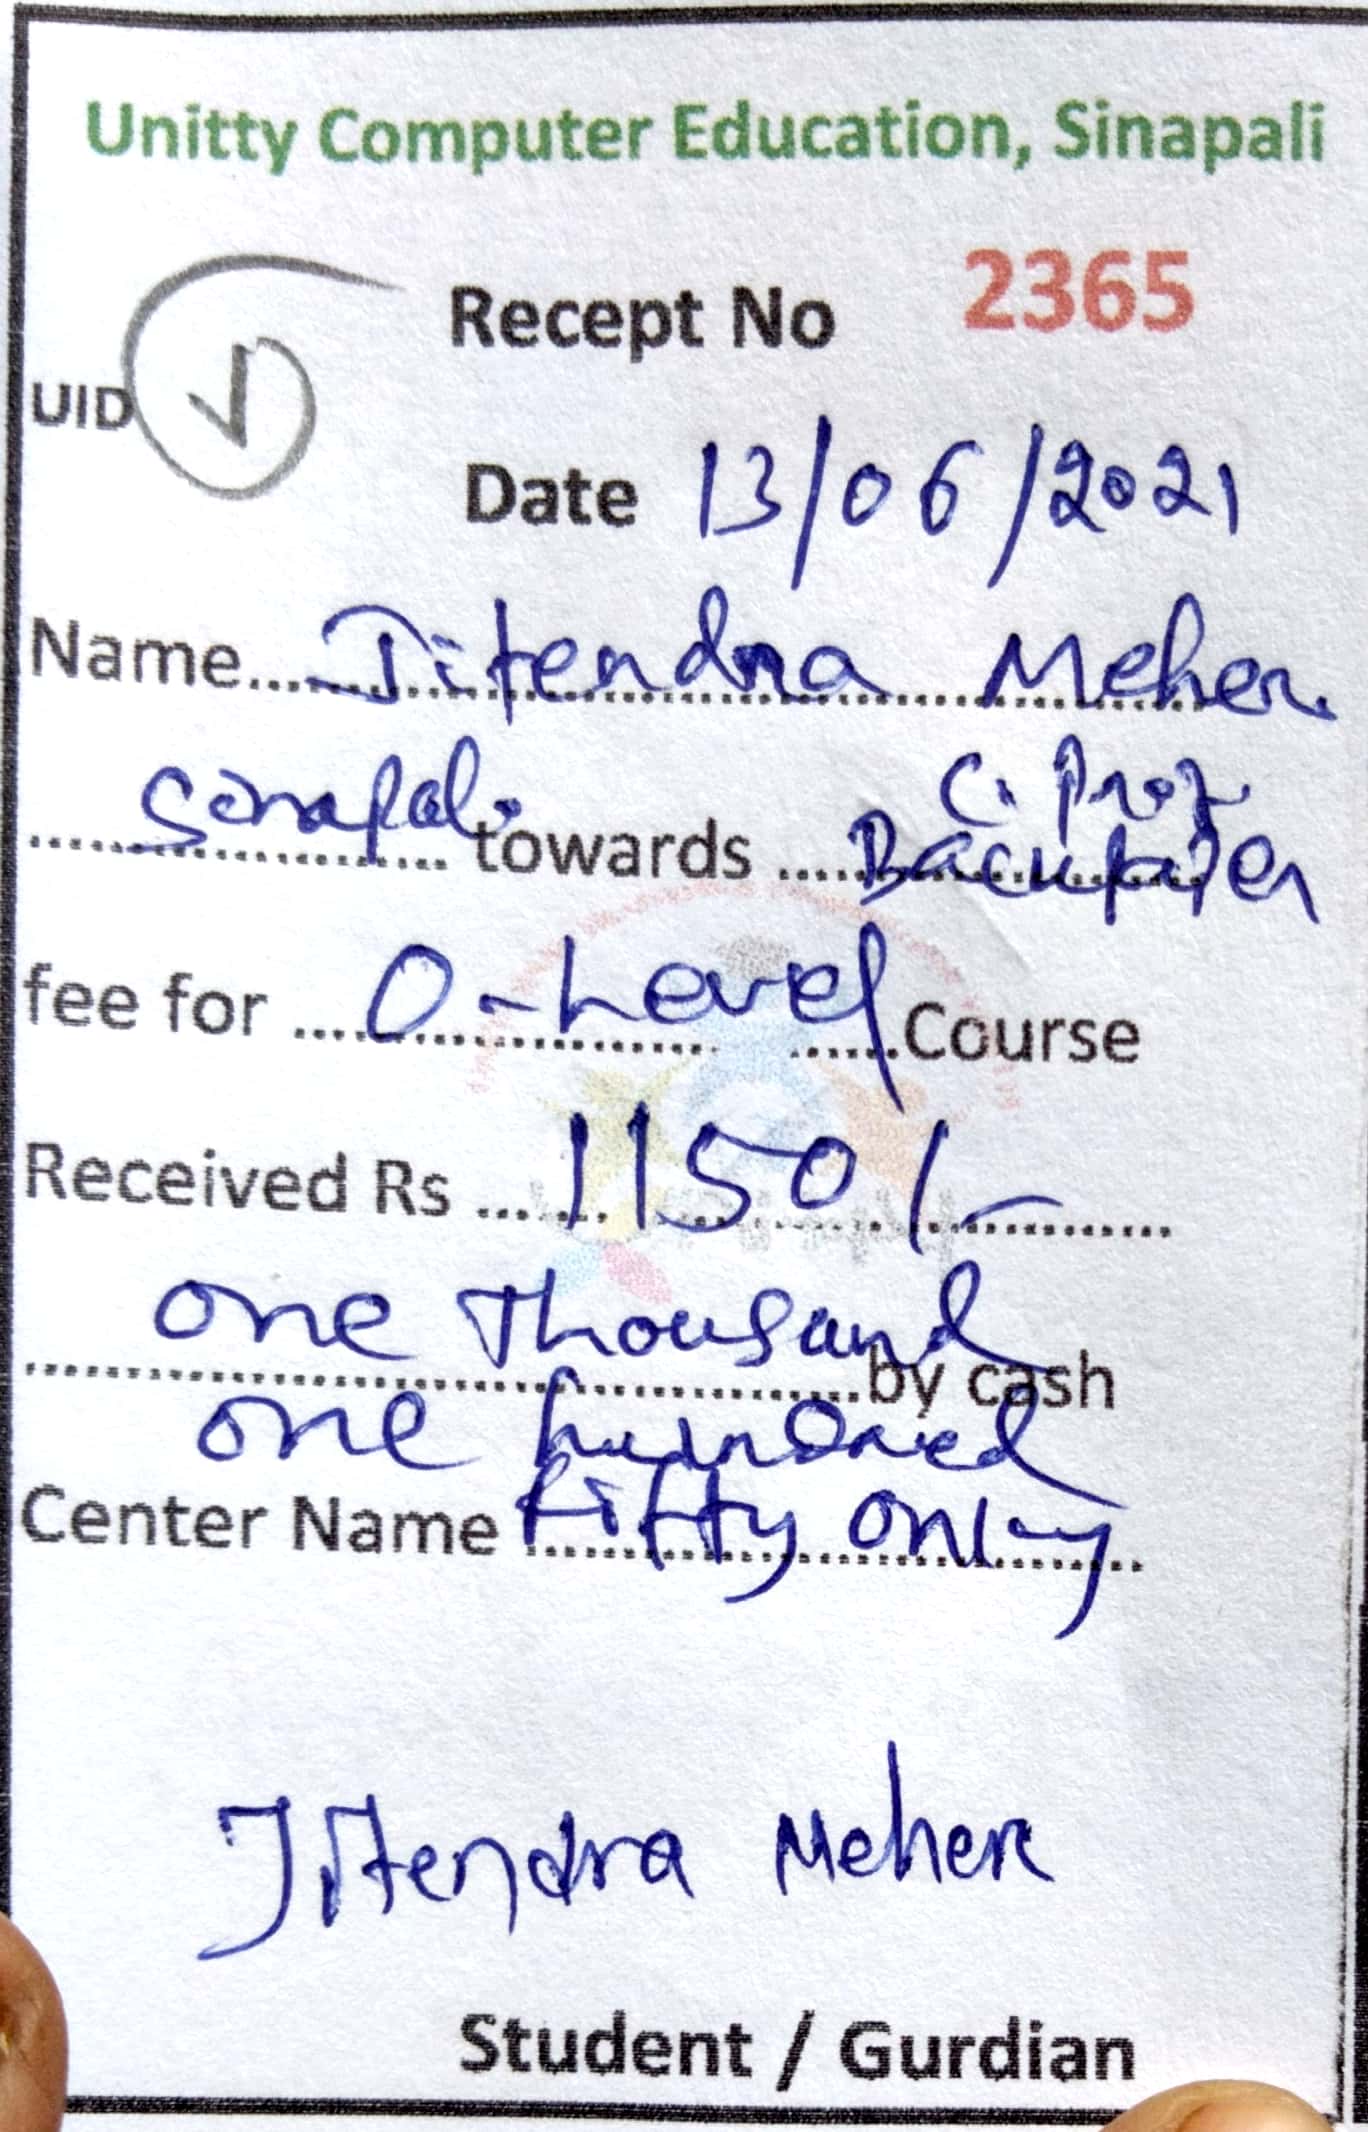 Unitty Computer Education, Sinapali
Recept No 2365
UID
Date 13/06/2021
Name.....Jitendra Meher
Sinapali towards ..... C. Proj
Backpaper
fee for ..... O-Level ..... Course
Received Rs ..... 1150/-
One Thousand
.....by cash
one hundred
Center Name fifty only
Jitendra Meher
Student / Gurdian